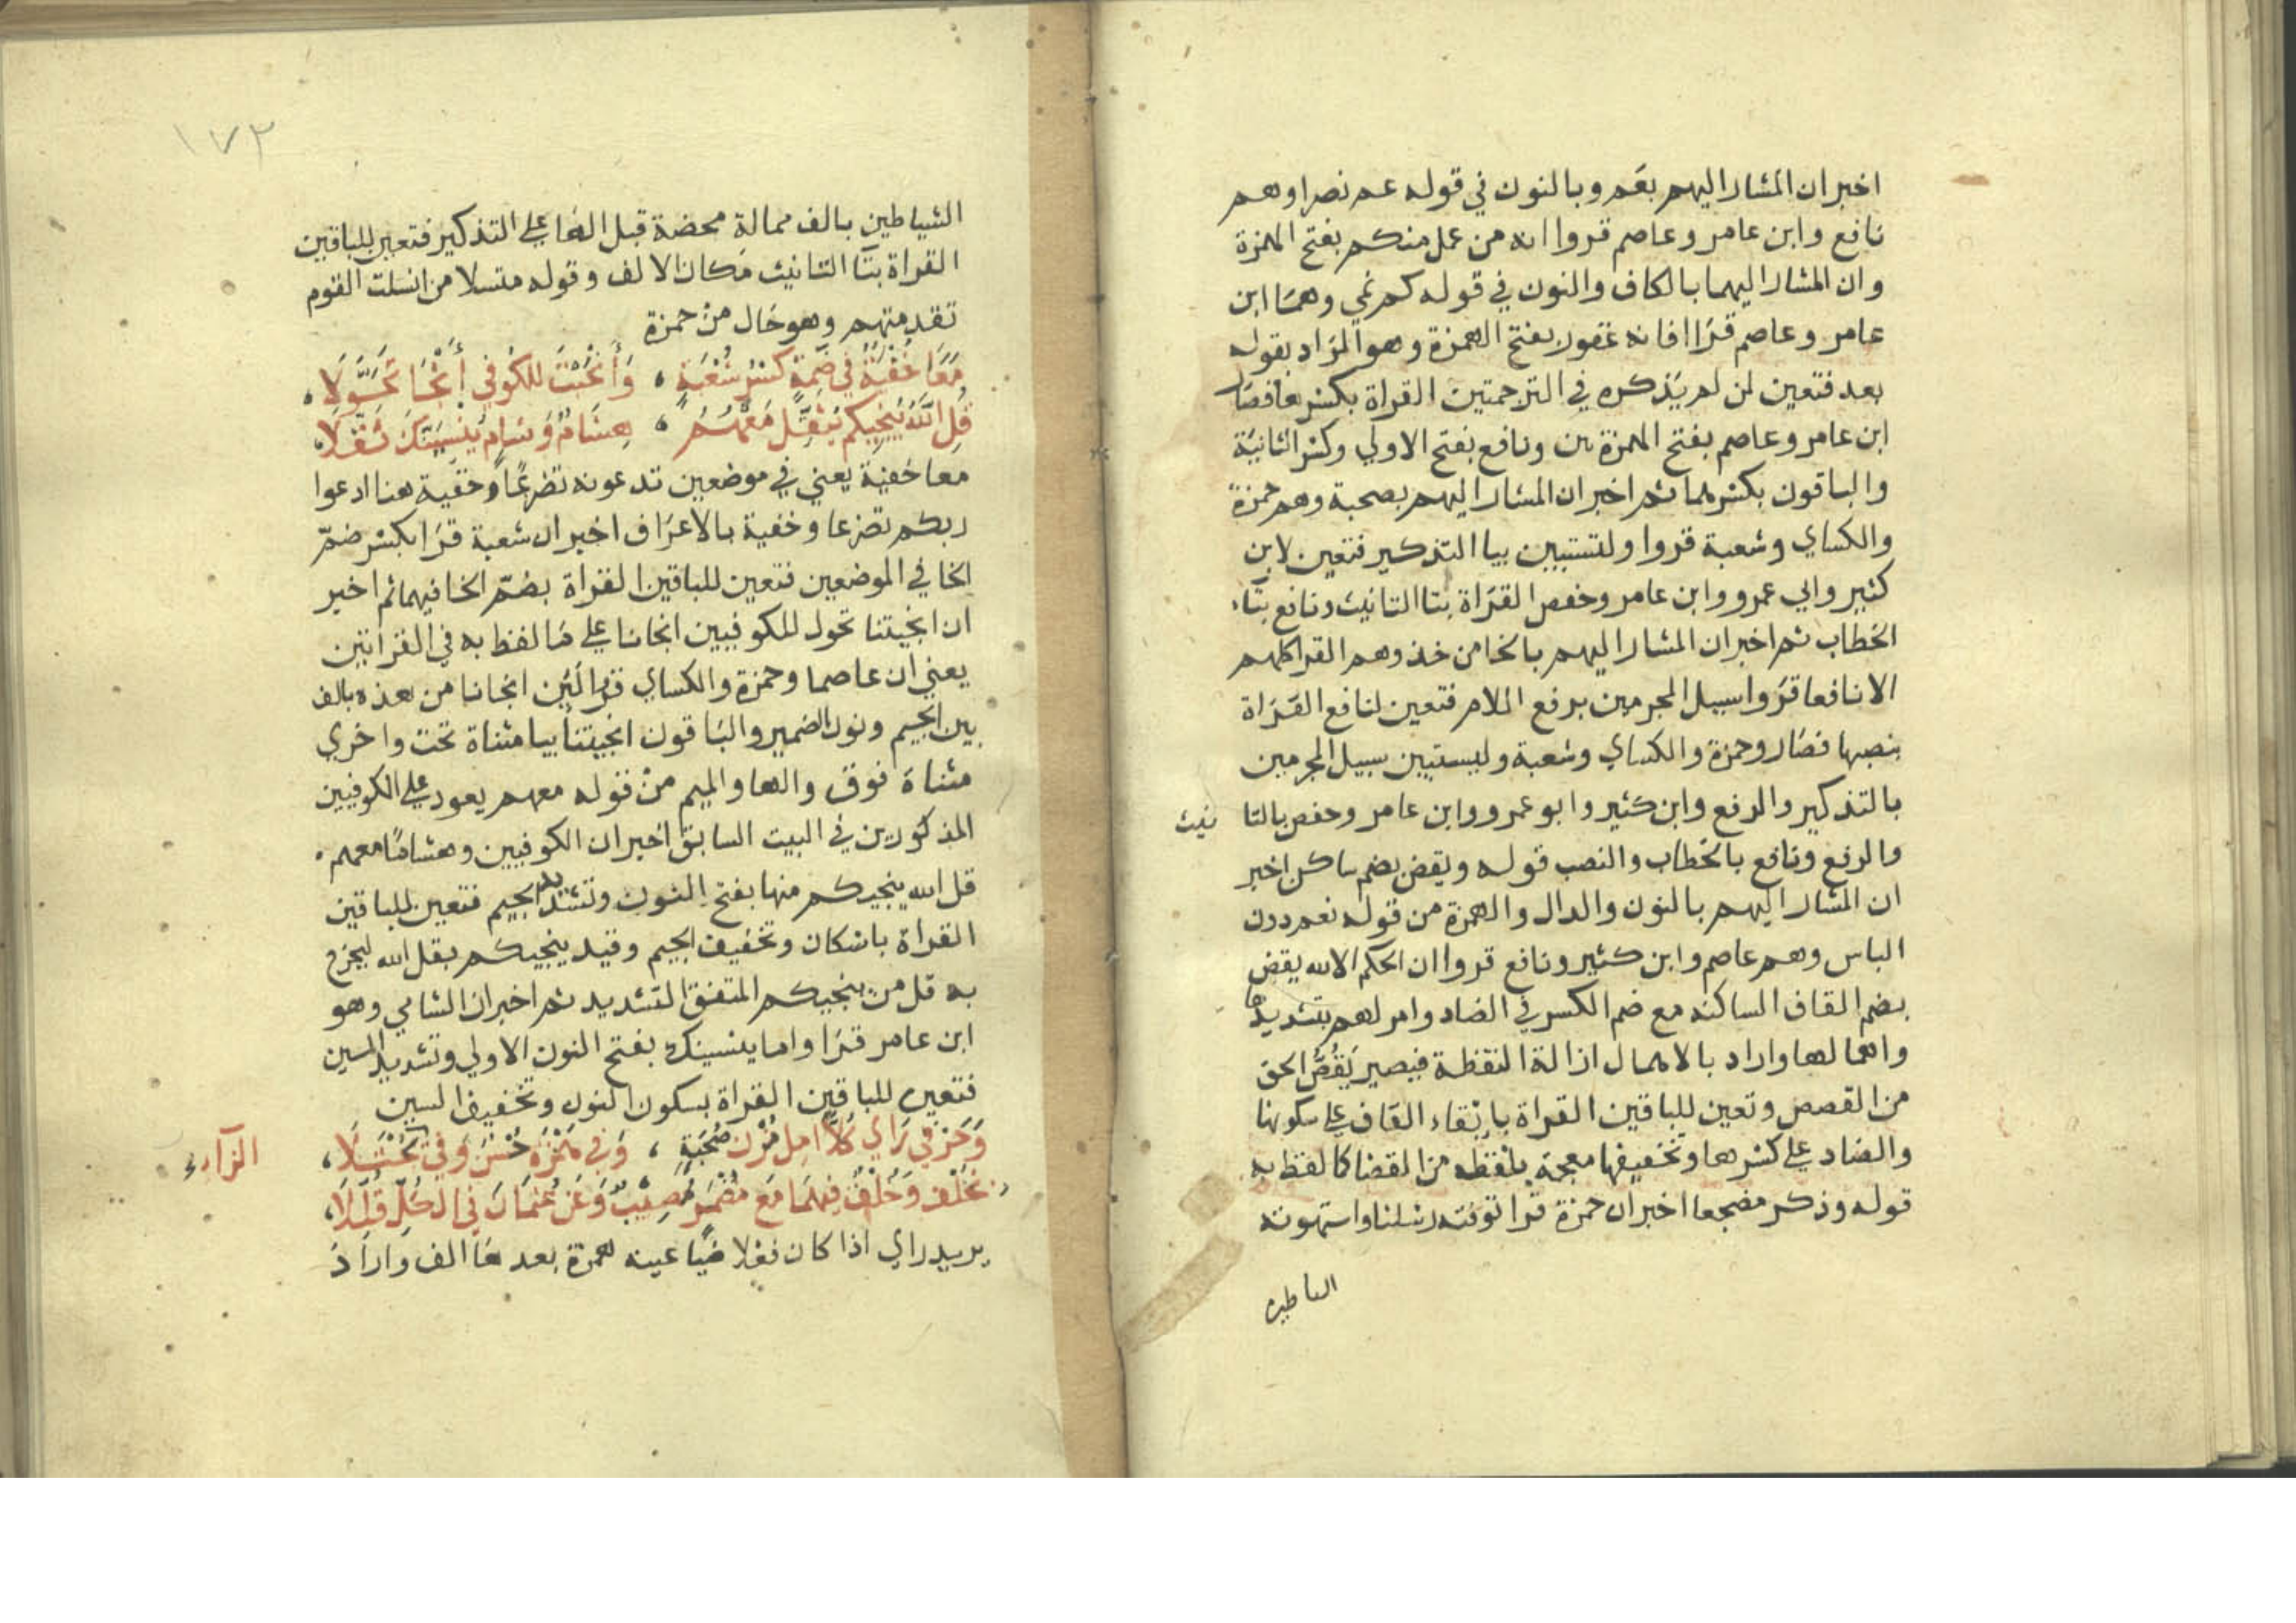 اخبر ان المشار اليهم بعَم وبالنون في قوله عم نصرا وهم
نافع وابن عامر وعاصم قروا انه من عمل منكم بفتح الهمزة
وان المشار اليهما بالكاف والنون في قوله كم نمي وهما ابن
عامر وعاصم قرَا فانه غفور بفتح الهمزة وهو المرَاد بقوله
بعد فتعين لمن لم يَذكره في الترجمتين القراة بكسرهما فصَار
ابن عامر وعاصم بفتح الهمزتين ونافع بفتح الاولي وكسر الثانية
والباقون بكسرهما ثم اخبر ان المشار اليهم بصحبة وهم حمزة
والكساي وشعبة قروا ولتستبين بيا التذكير فتعين لابن
كثير وابي عمرو وابن عامر وحفص القرَاة بتا التانيث ونافع بتاء
الخطاب ثم اخبر ان المشار اليهم بالخا من خذ وهم القرا كلهم
الا نافعا قرَوا سبيل المجرمين برفع اللام فتعين لنافع القرَاة
بنصبها فصَار وحمزة والكساي وشعبة وليستبين سبيل المجرمين
بالتذكير والرفع وابن كثير وابو عمرو وابن عامر وحفص بالتا نيث
والرفع ونافع بالخطاب والنصب قوله ويقض بضم ساكن اخبر
ان المشار اليهم بالنون والدال والهمزة من قوله نعم دون
الباس وهم عاصم وابن كثير ونافع قروا ان الحكم الا لله يقض
بضم القاف الساكنه مع ضم الكسر في الضاد وامر لهم بتشديدها
واهمالها واراد بالاهمال ازالة النقظة فيصير يَقُصُّ الحق
من القصص وتعين للباقين القراة بابقاء القاف علي سكونها
والضاد علي كسرها وتخفيفها معجمة بلفظه من القضا كالفظ به
قوله وذكر مضجعا اخبر ان حمزة قرا توفته رسلنا واستهوته
الشياطين بالف ممالة محضة قبل الها علي التذكير فتعين للباقين
القراة بتا التانيث مكان الالف وقوله منسلا من انسلت القوم
تقدمتهم وهو حَال من حمزة
مَعًا خُفْيَةً في ضَمِّهِ كَسْرُ شُعْبَةٍ ، وَأَنْجَيْتَ للكُوفي أَنْجَا تَحَوَّلَا ،
قُلِ اللَّهُ يُنْجِيكُم يُثَقِّلُ مَعْهُمُ ، هِشَامٌ وَشَامٍ يُنْسِيَنَّكَ ثَقَّلَا ،
معا خفية يعني في موضعين تدعونه تضرعًا وخفية هنا ادعوا
ربكم تضرعا وخفية بالاعرَاف اخبر ان شعبة قرَا بكسر ضمّ
الخا في الموضعين فتعين للباقين القراة بضمّ الخا فيهما ثم اخبر
ان انجيتنا تحول للكوفيين انجانا علي مَا لفظ به في القراتين
يعني ان عاصما وحمزة والكساي قرا لئن انجانا من هذه بالف
بين الجيم ونون الضمير والبَاقون انجيتنا بيا مثناة تحت واخري
مثناة فوق والها والميم منْ قوله معهم يعود علي الكوفيين
المذكورين في البيت السابق اخبر ان الكوفيين وهشامًا معهم
قل الله ينجيكم منها بفتح النون وتشديد الجيم فتعين للباقين
القراة باسكان وتخفيف الجيم وقيد ينجيكم بقل الله ليخرج
به قل من ينجيكم المتفق التشديد ثم اخبر ان الشامي وهو
ابن عامر قرَا واما ينسينك بفتح النون الاولي وتشديد السين
فتعين للباقين القراة بسكون النون وتخفيف السين
وَحَرْفَي رَاي كُلًّا امِل مُزْنَ صُحْبَةٍ ، وَفي هَمْزِهِ حُسْنٌ وَفي
الرَآء
بخُلْفٍ وَخُلْفٌ فِيهِمَا مَعَ مُضْمَرٍ مُصِيْبٌ وَعَنْ عُثمَانَ في الكُلِّ قَلِّلَا ،
يريد راي اذا كان فعلا عينه همزة بعدها الف واراد